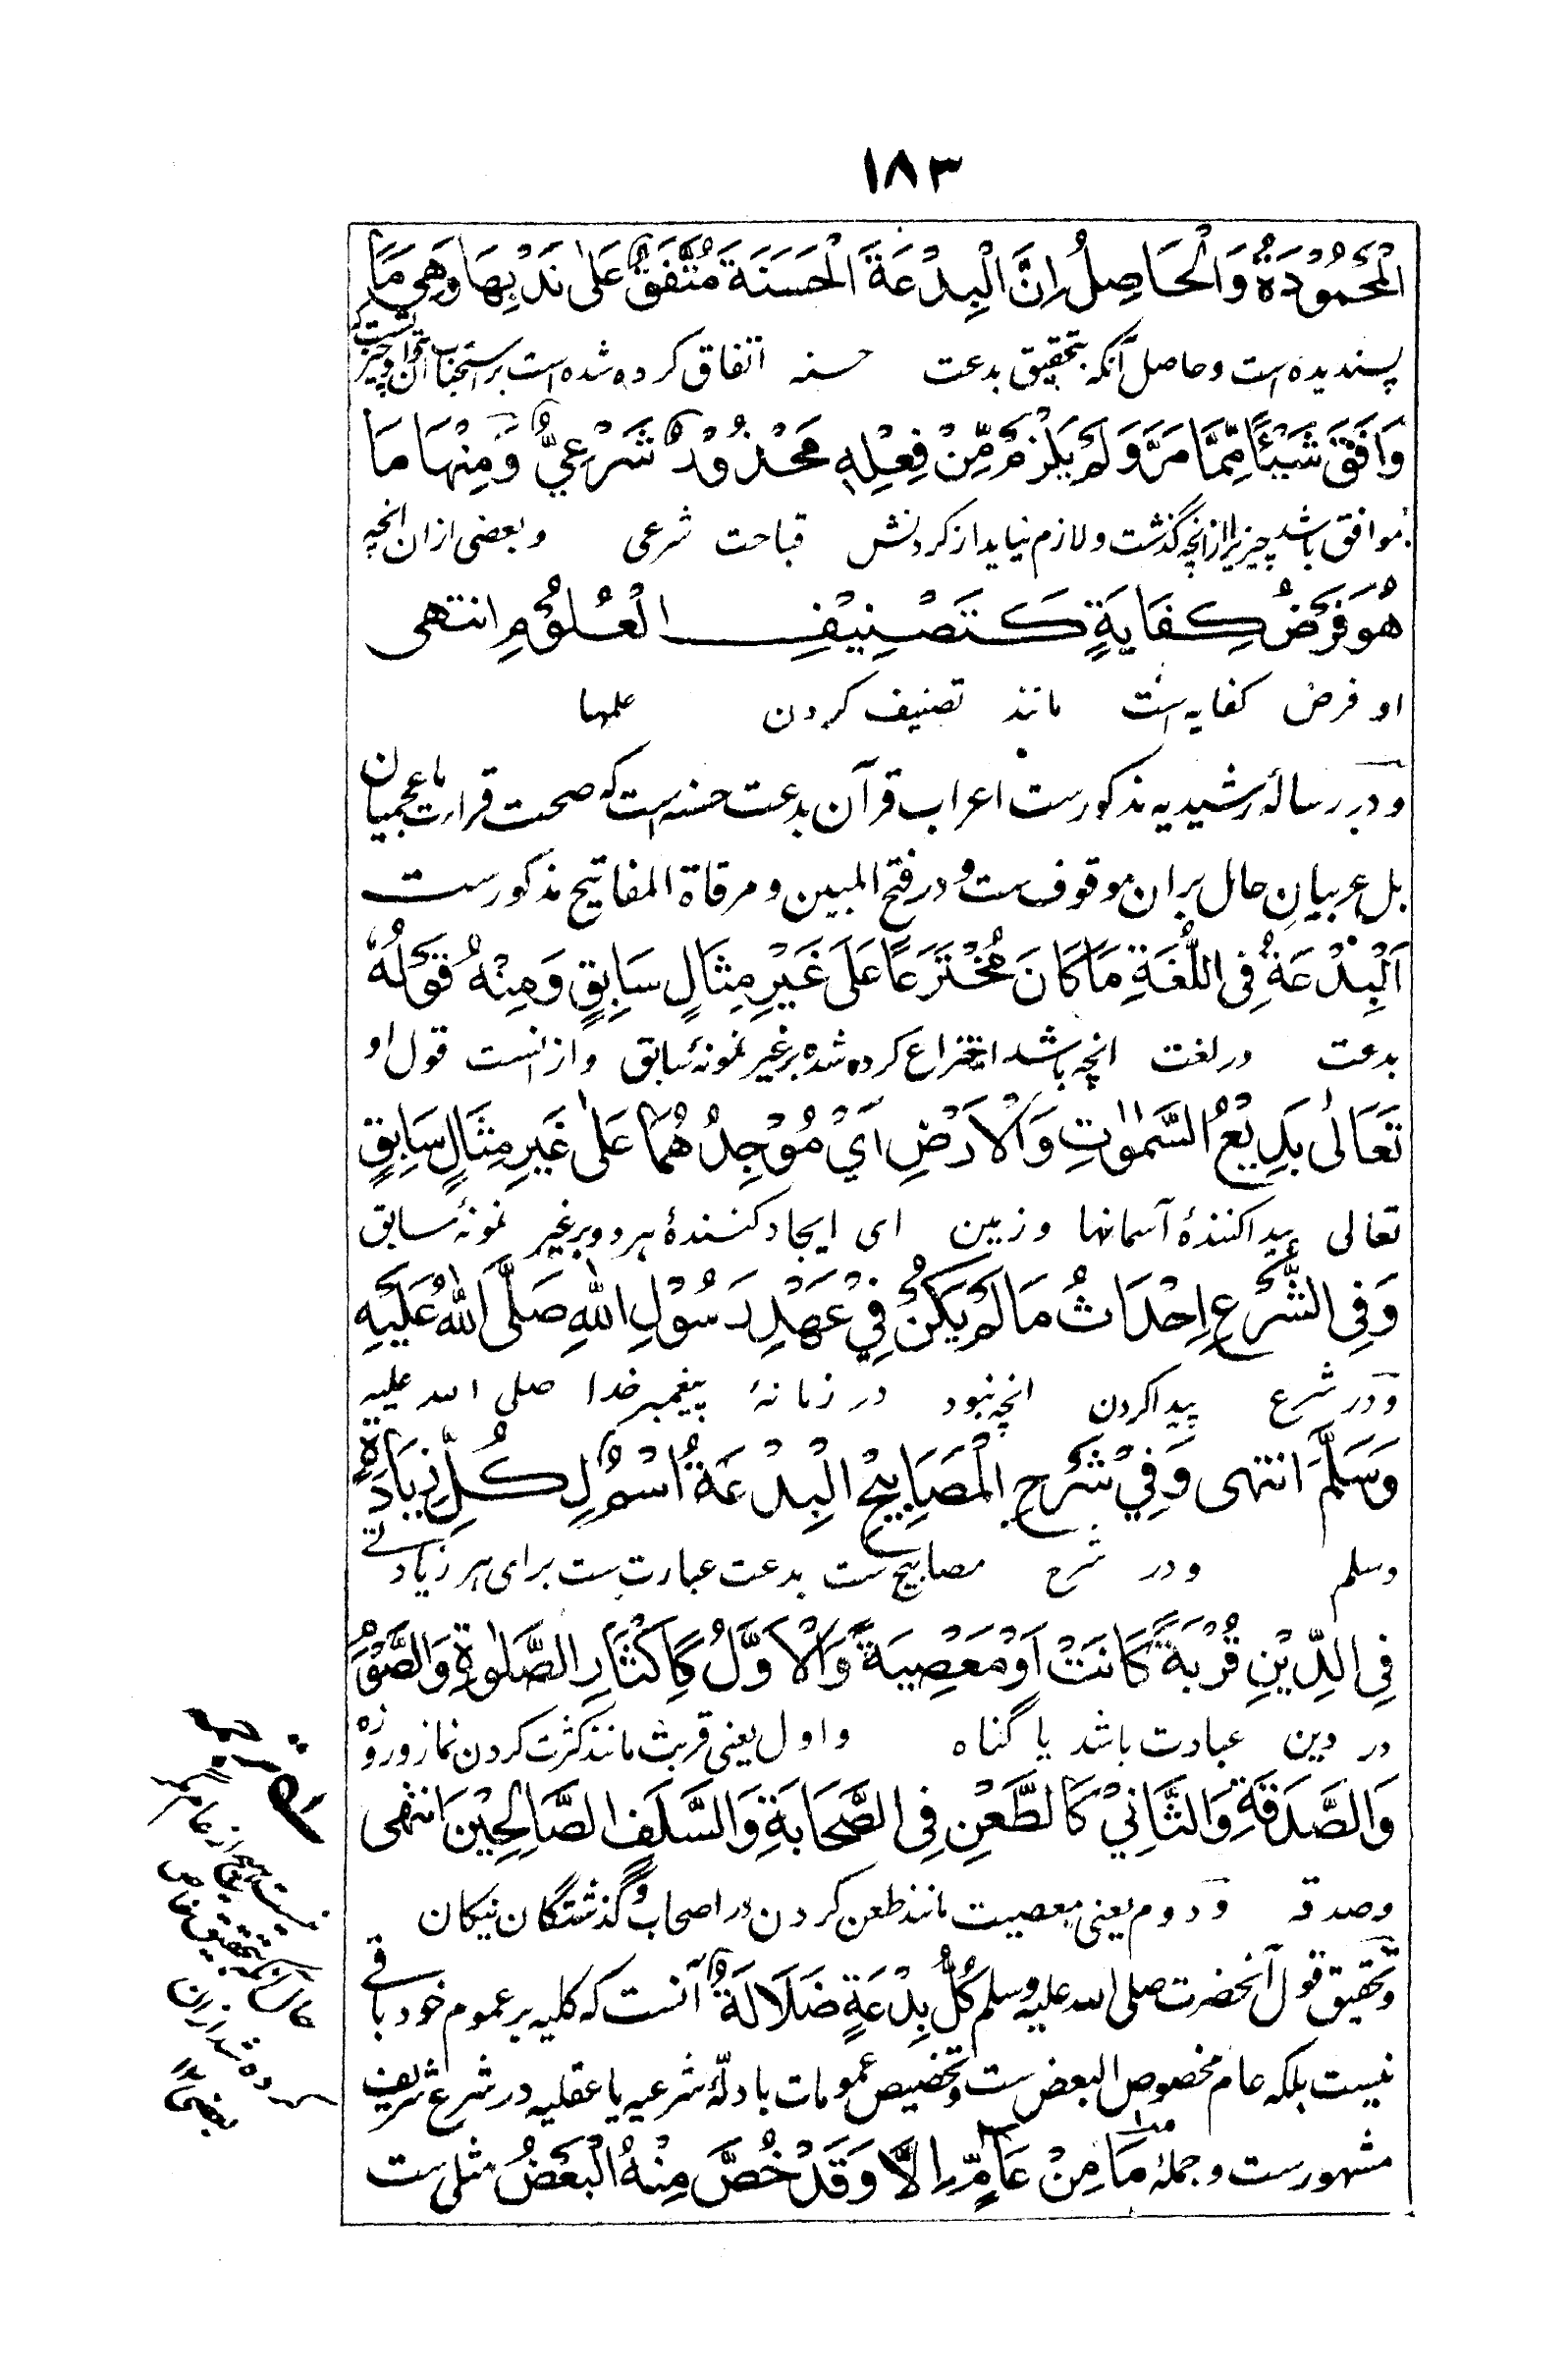 ١٨٣
الْمَحْمُوْدَةُ وَالْحَاصِلُ اِنَّ الْبِدْعَةَ الْحَسَنَةَ مُتَّفَقٌ عَلٰى نَدْبِهَا وَهِيَ مَا
پسندیده است و حاصل آنکه بتحقیق بدعت حسنه اتفاق کرده شده است بر استحباب آن و
وَافَقَ شَيْئًا مِّمَّا مَرَّ وَلَمْ يَلْزَمْ مِّنْ فِعْلِهٖ مَحْذُوْرٌ شَرْعِيٌّ وَمِنْهَا مَا
موافق باشد چیزیرا ازانچه گذشت و لازم نیاید از کردنش قباحت شرعی و بعضی ازان انچه
هُوَ فَرْضُ كِفَايَةٍ كَتَصْنِيْفِ الْعُلُوْمِ انتهى
او فرض کفایه است مانند تصنیف کردن علمها
و در رسالهٔ رشیدیه مذکورست اعراب قرآن بدعت حسنه است که صحت قرارت ما عجمیان
بل عربیان حال بران موقوف ست و در فتح المبین و مرقاة المفاتیح مذکورست
اَلْبِدْعَةُ فِي اللُّغَةِ مَا كَانَ مُخْتَرَعًا عَلٰى غَيْرِ مِثَالٍ سَابِقٍ وَمِنْهُ قَوْلُهٗ
بدعت در لغت انچه باشد اختراع کرده شده بر غیر نمونهٔ سابق و از انست قول او
تَعَالٰى بَدِيْعُ السَّمٰوٰتِ وَالْاَرْضِ اَيْ مُوْجِدُهُمَا عَلٰى غَيْرِ مِثَالٍ سَابِقٍ
تعالی پیدا کنندهٔ آسمانها و زمین ای ایجاد کنندهٔ هر دو بر غیر نمونهٔ سابق
وَفِي الشَّرْعِ اِحْدَاثُ مَا لَمْ يَكُنْ فِيْ عَهْدِ رَسُوْلِ اللهِ صَلَّى اللهُ عَلَيْهِ
و در شرع پیدا کردن انچه نبود در زمانهٔ پیغمبر خدا صلی الله علیه
وَسَلَّمَ انتهى وَفِيْ شَرْحِ الْمَصَابِيْحِ الْبِدْعَةُ اسْمٌ لِكُلِّ زِيَادَةٍ
وسلم و در شرح مصابیح ست بدعت عبارت ست برای هر زیادتے
فِي الدِّيْنِ قُرْبَةً كَانَتْ اَوْ مَعْصِيَةً وَالْاَوَّلُ كَاِكْثَارِ الصَّلٰوةِ وَالصَّوْمِ
در دین عبادت باشد یا گناه و اول یعنی قربت مانند کثرت کردن نماز و روزه
وَالصَّدَقَةِ وَالثَّانِيْ كَالطَّعْنِ فِي الصَّحَابَةِ وَالسَّلَفِ الصَّالِحِيْنَ انتهى
و صدقه و دوم یعنی معصیت مانند طعن کردن در اصحاب و گذشتگان نیکان
و تحقیق قول آنحضرت صلی الله علیه وسلم كُلُّ بِدْعَةٍ ضَلَالَةٌ آنست که کلیه بر عموم خود باقے
نیست بلکه عام مخصوص البعض ست و تخصیص عمومات بادلّهٔ شرعیه یا عقلیه در شرع شریف
مشهورست و جملهٔ مَا مِنْ عَامٍّ اِلَّا وَقَدْ خُصَّ مِنْهُ الْبَعْضُ مثلی ست
ترجمه
نیست هیچ از عام مگر